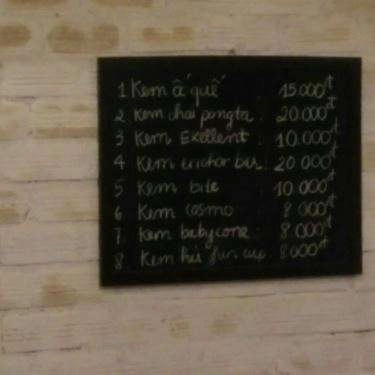 1 Kem ố quế 15.000đ
2 Kem chai pingta 20.000đ
3 Kem Exellent 10.000đ
4 Kem 20 000đ
5 Kem 10 000đ
6 Kem cosmo 8 000đ
7 Kem babycone 8.000đ
8 Kem 8 000đ